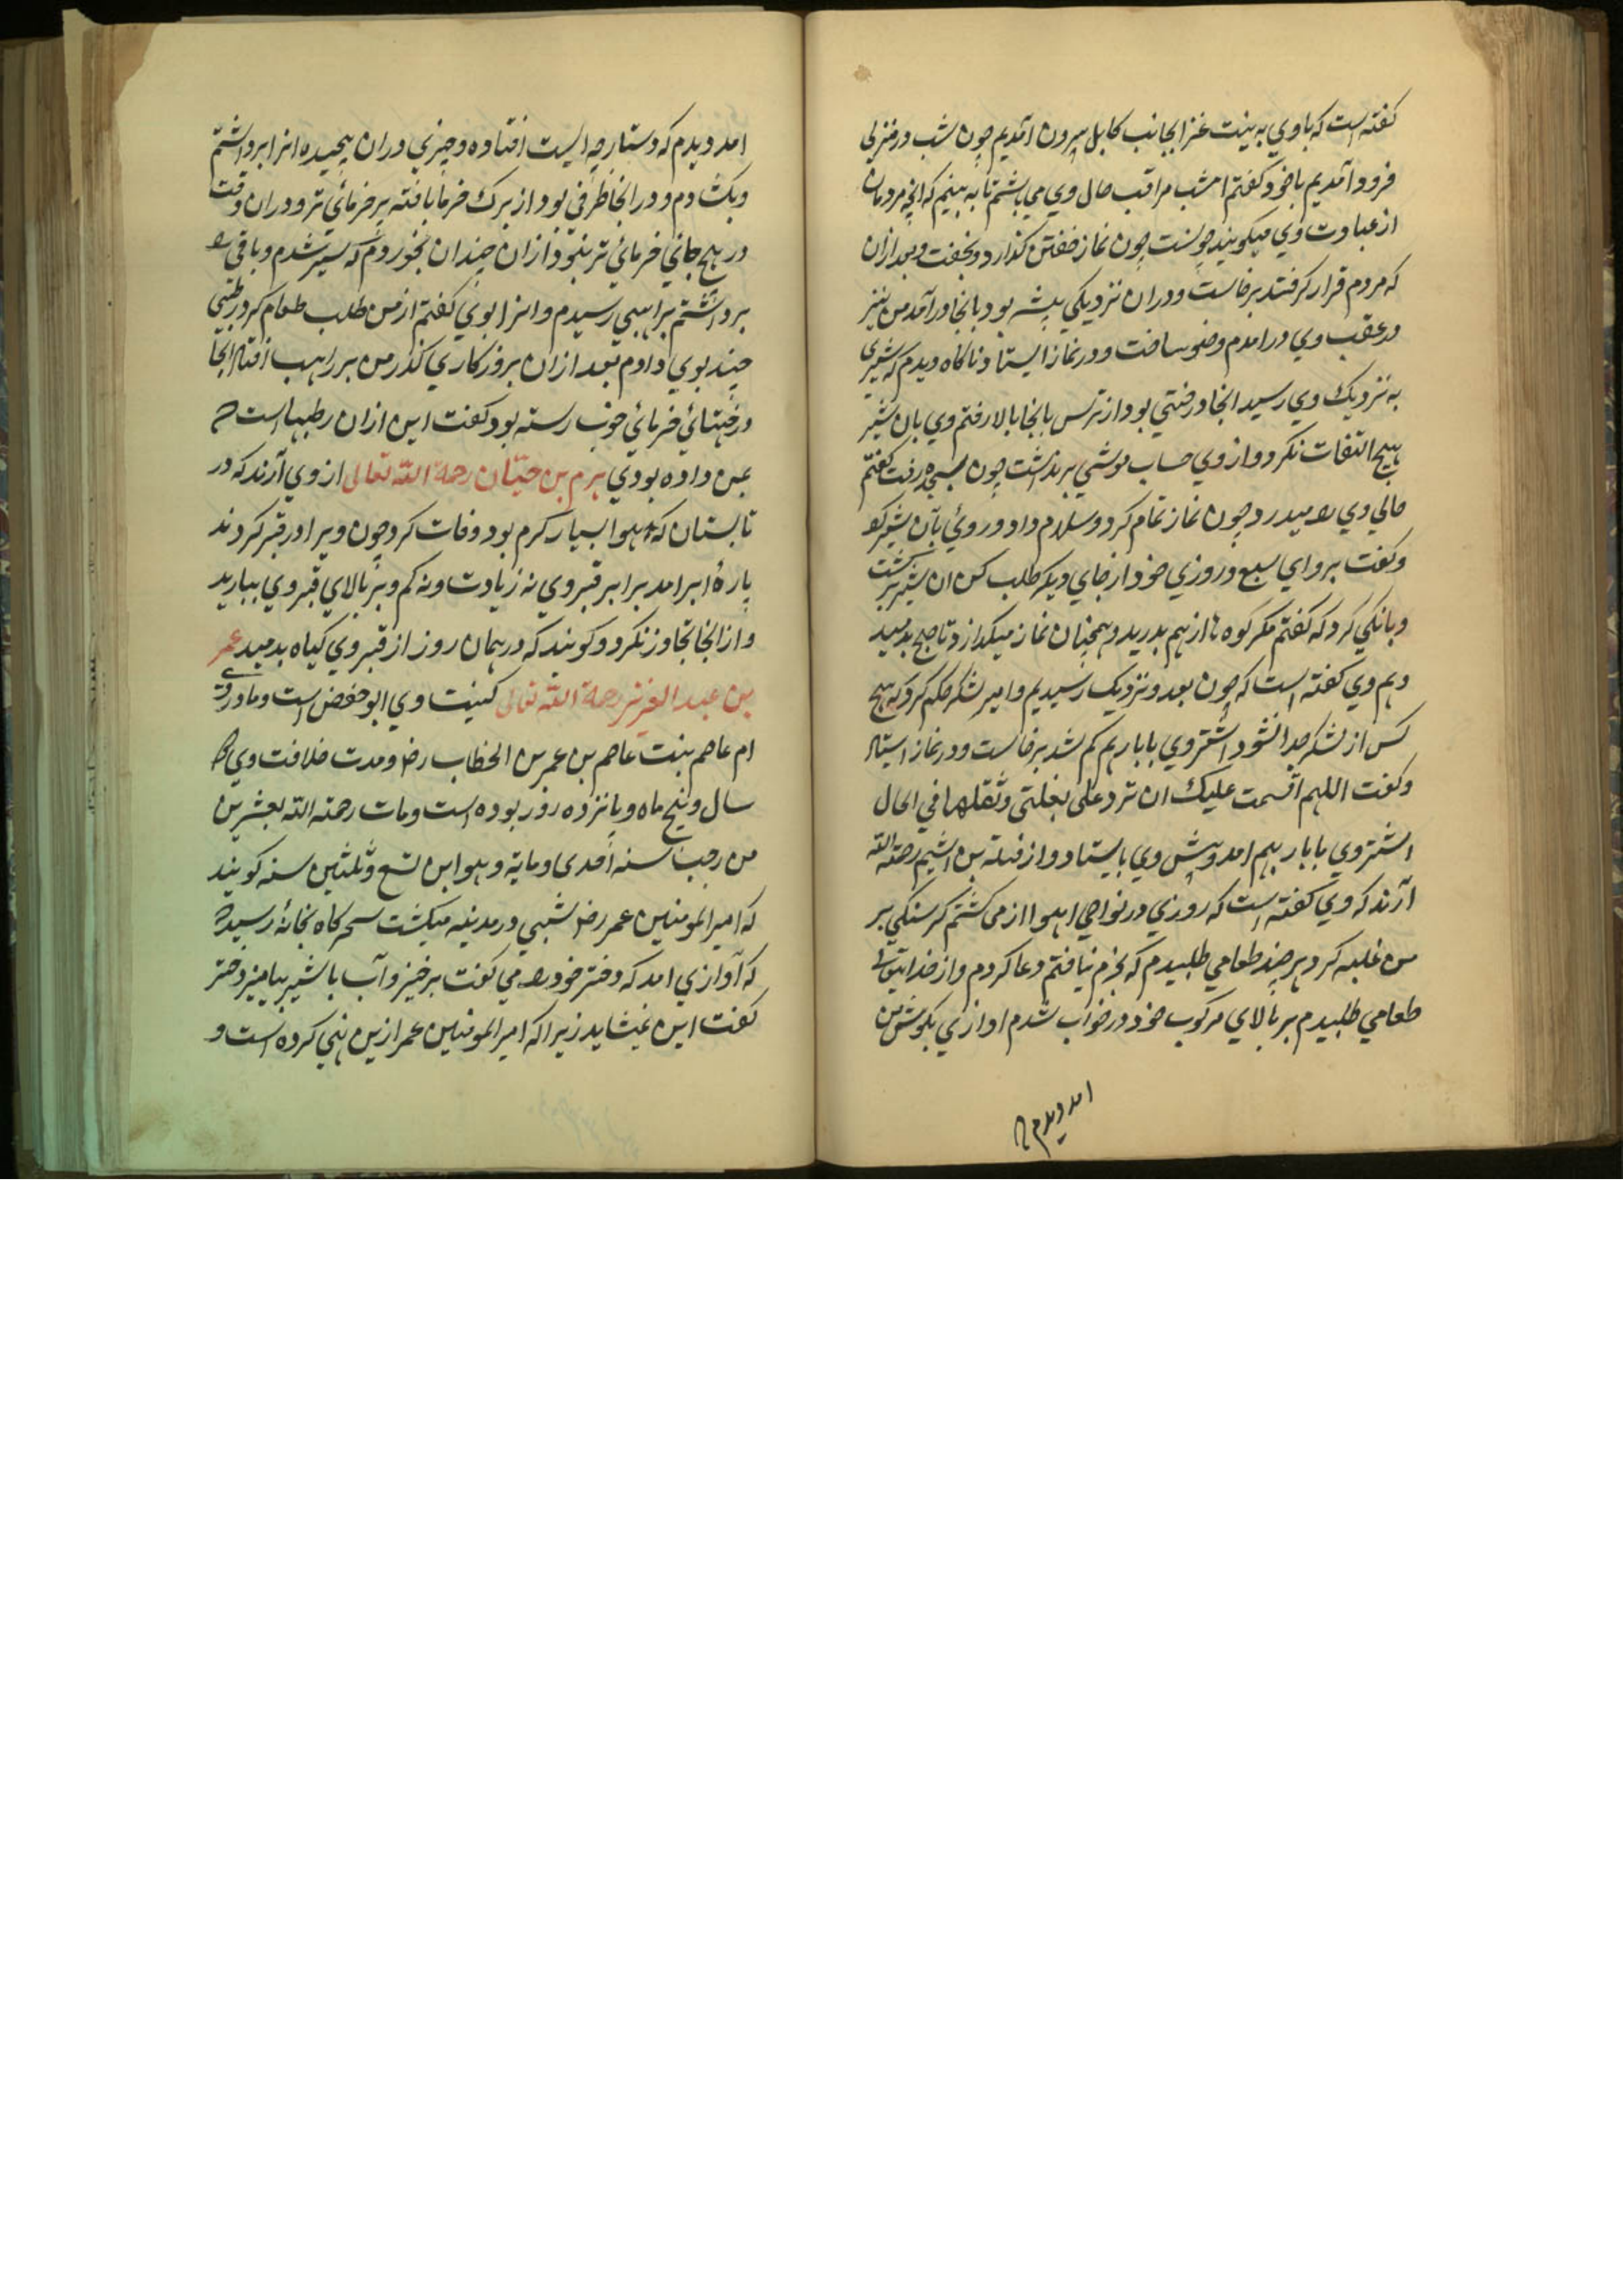 کفته است که باوی به نیت غزا بجانب کابل بیرون آمدیم چون شب در منزلی
فرود آمدیم با خود کفتم امشب مراقب حال وی می باشم تا به بینم که انچه مردمان
از عبادت وی میکویند چونست چون نماز خفتن کذارد و بخفت و بعد ازان
که مردم قرار کرفتند برخاست ودران نزدیکی بیشه بود بانجا درآمد من نیز
در عقب وی درامدم وضو ساخت و در نماز ایستاد ناکاه دیدم که شیری
به نزدیک وی رسید انجا درختی بود از ترس بانجا بالا رفتم وی بان شیر
هیچ التفات نکرد و از وی حساب موشی برنداشت چون بسجده رفت کفتم
حالی وی را میدرد چون نماز تمام کرد و سلام داد و روی بآن شیر کرد
و کفت برو ای سبع و روزی خود از جای دیکر طلب کن ان شیر برکشت
و بانکی کرد که کفتم مکر کوه ها از هم بدرید و همچنان نماز میکذارد تا صبح بدمید
و هم وی کفته است که چون بعدو نزدیک رسیدیم و امیر لشکر حکم کرد که هیچ
کس از لشکر جدا نشود اشتر وی با بار بهم کم شد برخاست و در نماز ایستاد
و کفت اللهم اقسمت علیک ان ترد علی بغلتی و ثقلها في الحال
اشتر وی با بار بهم امد و پیش وی بایستاد و از صله بن اشیم رحمة الله
آرند که وی کفته است که روزی در نواحی اهواز می کشتم کرسنکی بر
من غلبه کرد هر چند طعامی طلبیدم که بخرم نیافتم دعا کردم و از خدایتعالی
طعامی طلبیدم بر بالای مرکوب خود در خواب شدم اوازی بکوش من
امد و دیدم که
امد و دیدم که دستارچه ایست افتاده و چیزی دران پیچیده انرا برداشتم
و بکشادم و در انجا ظرفی بود از برک خرما بافته پر خرمائی تر و دران وقت
در هیچ جائی خرمائی تر نبود ازان چندان بخوردم که سیر شدم و باقی را
برداشتم براهبی رسیدم و انرا بوی کفتم از من طلب طعام کرد رطبی
چند بوی دادم بعد ازان بروزکاری کذر من بر راهب افتاد انجا
درختهائی خرمائی خوب رسته بود کفت این ازان رطبهاست که
بمن داده بودی هرم بن حیّان رحمة الله تعالی از وی آرند که در
تابستان که هوا بسیار کرم بود وفات کرد چون ویرا در قبر کردند
پارهٔ ابر امد برابر قبر وی نه زیادت و نه کم و بر بالای قبر وی ببارید
و از انجا تجاوز نکرد و کویند که در همان روز از قبر وی کیاه بدمید عمر
بن عبد العزیز رحمة الله تعالی کنیت وی ابو حفص است و مادر وی
ام عاصم بنت عاصم بن عمر بن الخطاب رض و مدت خلافت وی دو
سال و پنج ماه و پانزده روز بوده است و مات رحمه الله بعشرین
من رجب سنه احدی و مایة و هو ابن تسع و ثلثین سنه کویند
که امیر المومنین عمر رض شبی در مدینه میکشت سحرکاه بخانهٔ رسید
که آوازی امد که دختر خود را می کفت برخیز و آب با شیر بیامیز دختر
کفت این نمیشاید زیرا که امیر المومنین عمر ازین نهی کرده است و